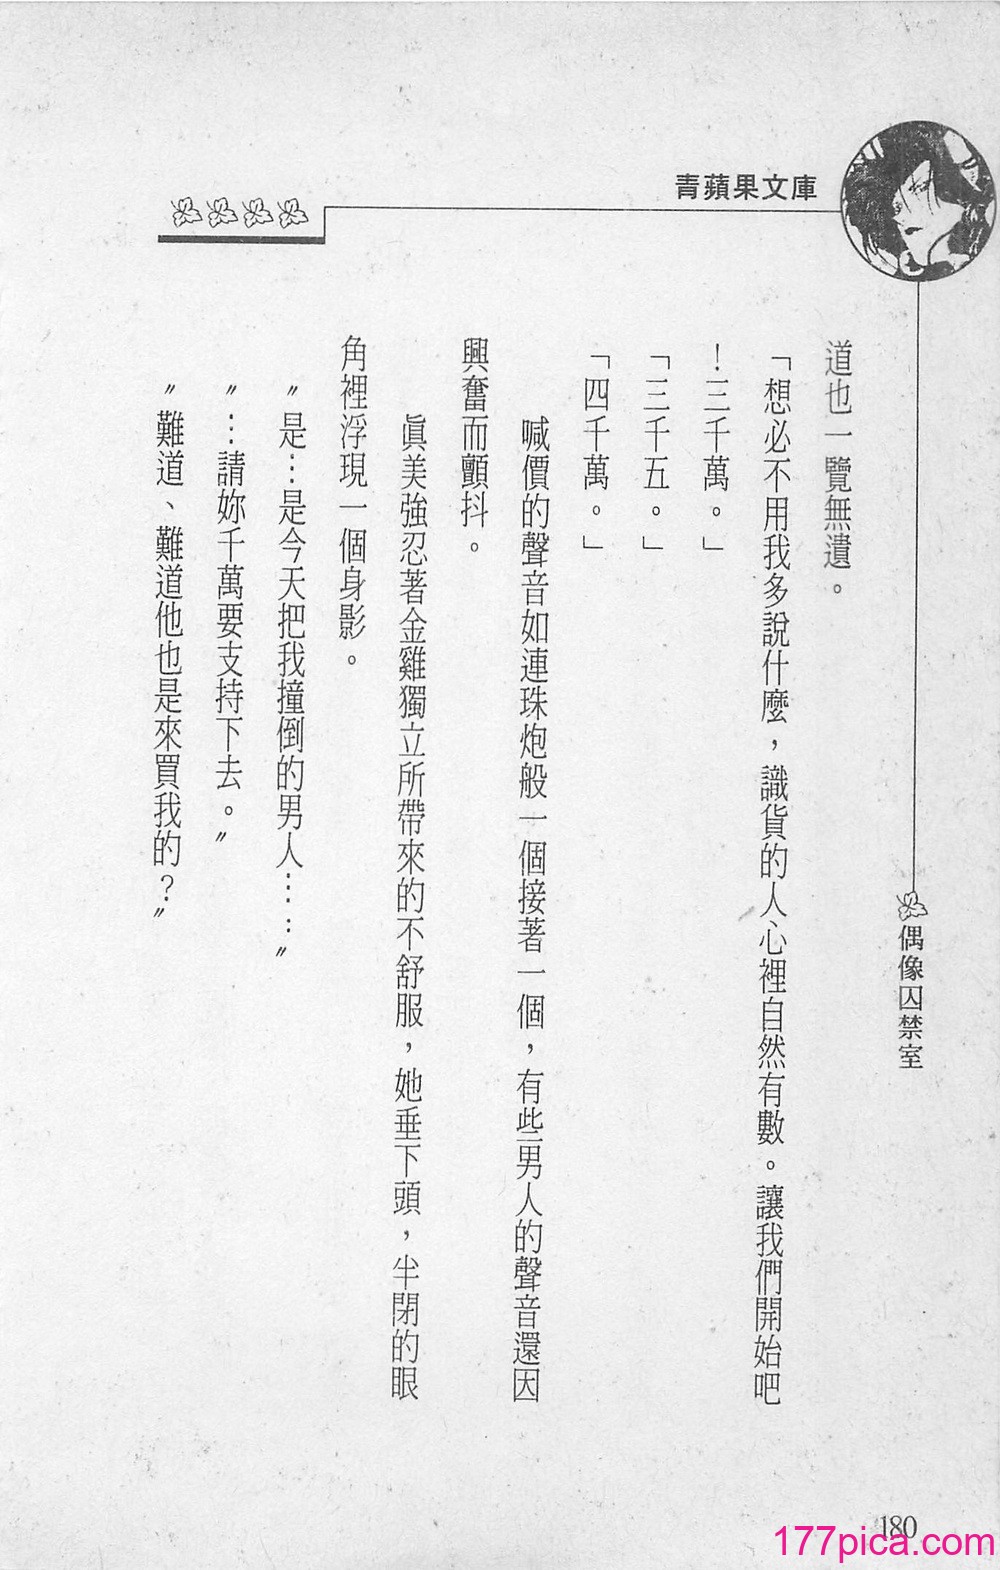 青蘋果文庫
偶像囚禁室
道也一覽無遺。
「想必不用我多說什麼，識貨的人心裡自然有數。讓我們開始吧
！三千萬。」
「三千五。」
「四千萬。」
喊價的聲音如連珠炮般一個接著一個，有些男人的聲音還因
興奮而顫抖。
眞美強忍著金雞獨立所帶來的不舒服，她垂下頭，半閉的眼
角裡浮現一個身影。
〝是…是今天把我撞倒的男人……〞
〝…請妳千萬要支持下去。〞
〝難道、難道他也是來買我的？〞
180
177pica.com